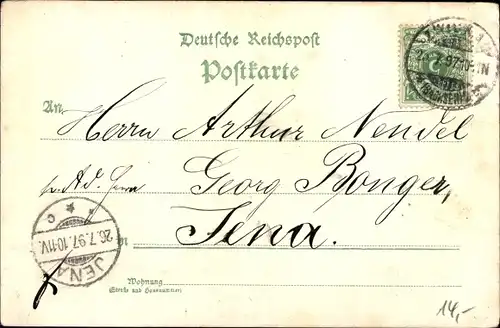 Deutsche Reichspost
Postkarte
An
Herrn Arthur Nendel
p. Ad. Herrn
Georg Bonger,
in Jena.
JENA
26.7.97.10-11V.
c
Wohnung
(Straße und Hausnummer)
14,-